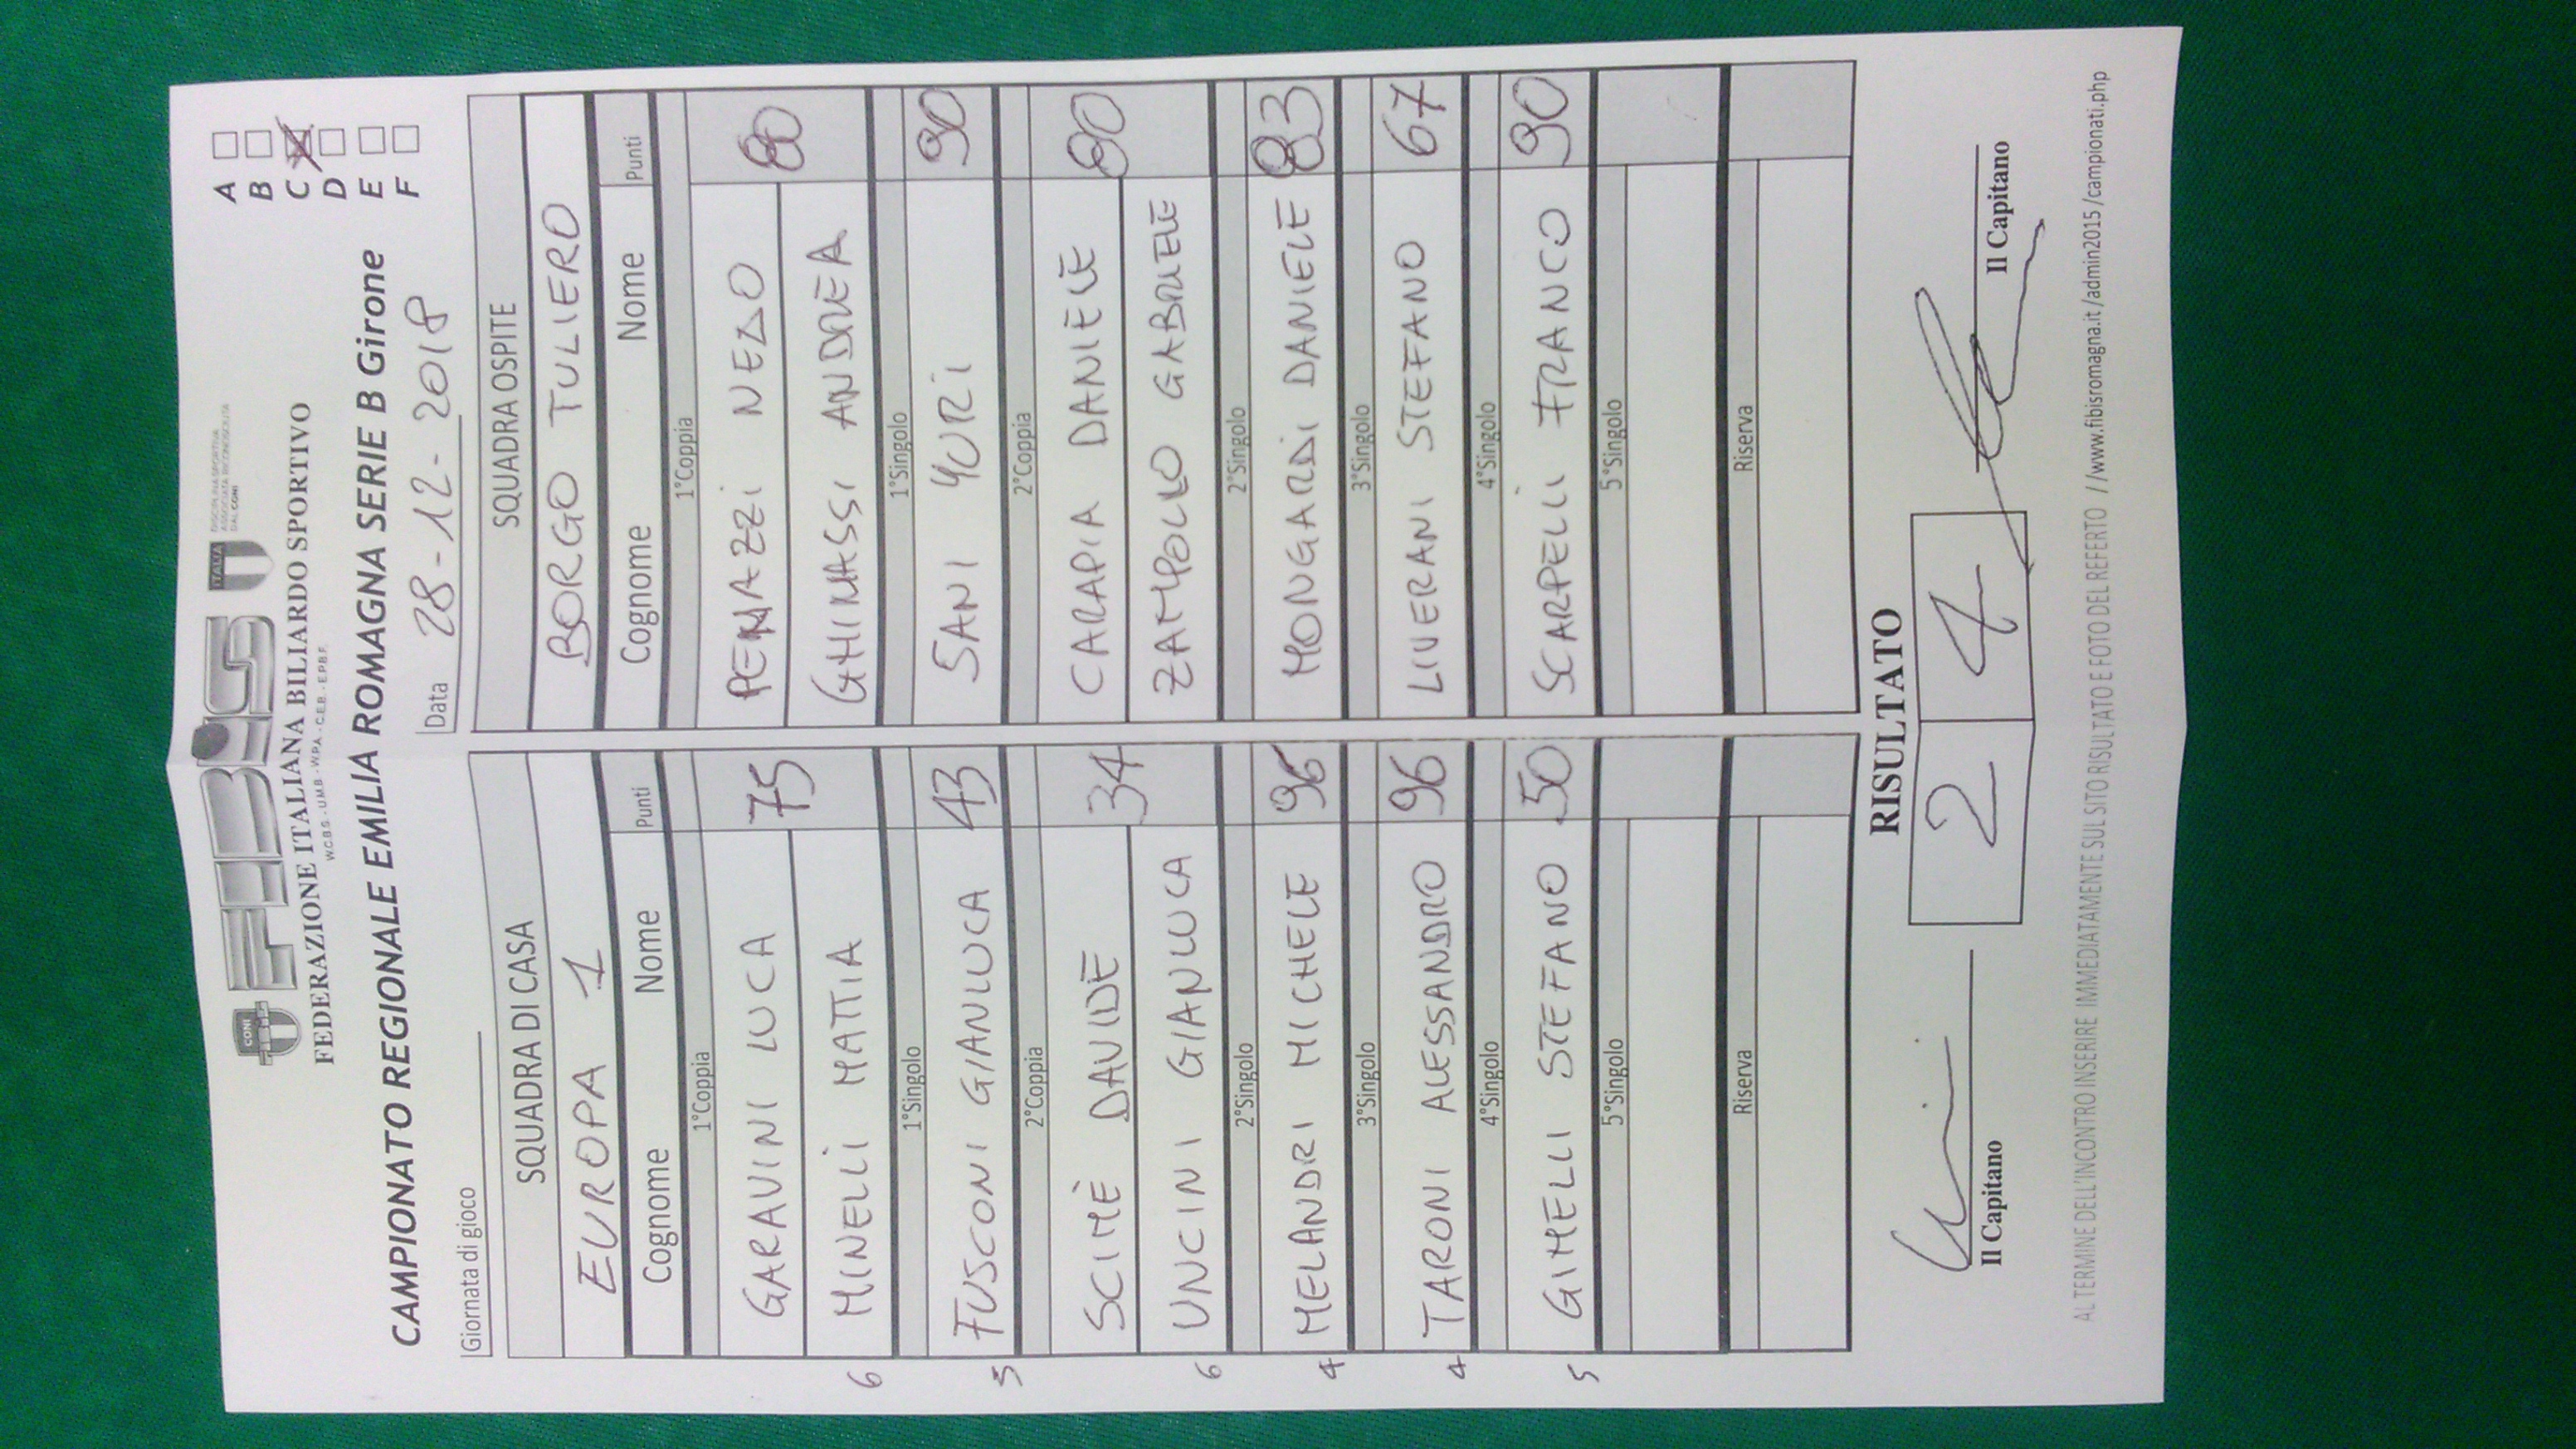 CONI FIBiS ITALIA
DISCIPLINA SPORTIVA
ASSOCIATA RICONOSCIUTA
DAL CONI
FEDERAZIONE ITALIANA BILIARDO SPORTIVO
W.C.B.S. - U.M.B. - W.P.A. - C.E.B. - E.P.B.F.
CAMPIONATO REGIONALE EMILIA ROMAGNA SERIE B Girone
A
B
C
D
E
F
Giornata di gioco
Data 28-12-2018
SQUADRA DI CASA
EUROPA 1
Cognome Nome Punti
1°Coppia
GARAVINI LUCA 75
MINELLI MATTIA
6
1°Singolo
FUSCONI GIANLUCA 43
5
2°Coppia
SCIMÈ DAVIDE 34
UNCINI GIANLUCA
6
2°Singolo
MELANDRI MICHELE 96
4
3°Singolo
TARONI ALESSANDRO 96
4
4°Singolo
GIMELLI STEFANO 50
5
5°Singolo
Riserva
SQUADRA OSPITE
BORGO TULIERO
Cognome Nome Punti
1°Coppia
NEDO 80
GHINASSI ANDREA
1°Singolo
SANI YURI 90
2°Coppia
CARAPIA DANIELE 80
ZAMPOLLO GABRIELE
2°Singolo
MONGARDI DANIELE 83
3°Singolo
LIVERANI STEFANO 67
4°Singolo
SCARPELLI FRANCO 90
5°Singolo
Riserva
RISULTATO
2 4
Il Capitano
Il Capitano
AL TERMINE DELL'INCONTRO INSERIRE IMMEDIATAMENTE SUL SITO RISULTATO E FOTO DEL REFERTO //www.fibisromagna.it/admin2015/campionati.php